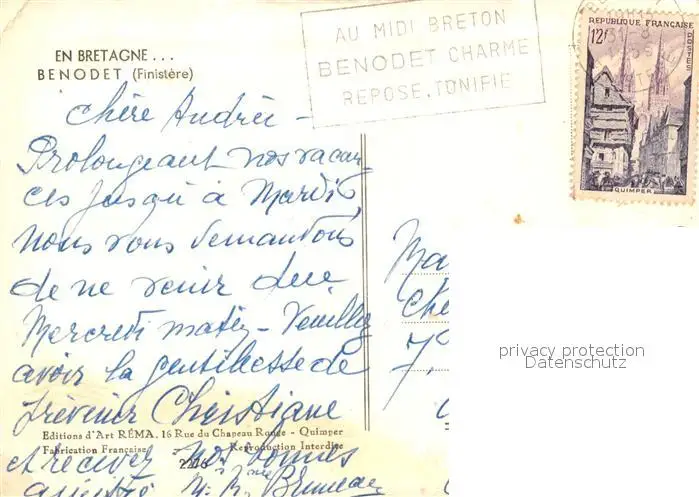 EN BRETAGNE...
BENODET (Finistère)
AU MIDI BRETON
BENODET CHARME
REPOSE, TONIFIE
REPUBLIQUE FRANÇAISE
12F
POSTES
QUIMPER
Chère Andrée -
Prolongeant nos vacan-
ces jusqu'à Mardi,
nous vous demandons
de ne venir que
Mercredi matin - Veuillez
avoir la gentillesse de
prévenir Christiane
Editions d'Art RÉMA, 16 Rue du Chapeau Rouge - Quimper
Fabrication Française Reproduction Interdite
et recevez nos bonnes
2216
amitiés
Ma
Che
7,
privacy protection
Datenschutz